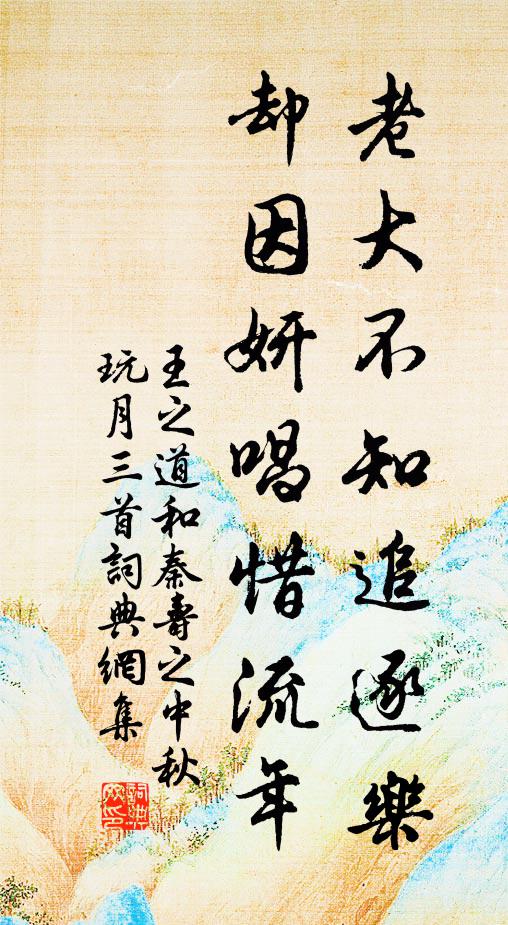 老大不知追逐樂
却因妍唱惜流年
王之道和秦壽之中秋
玩月三首詞典網集